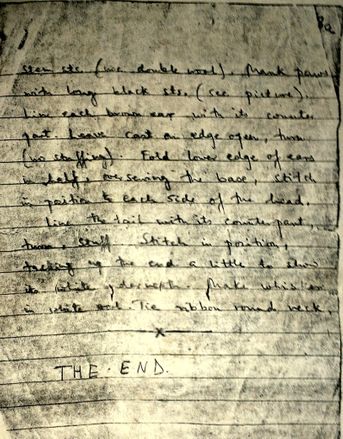 stem sts. (use double wool). Mark paws
with long black sts. (see picture).
Line each brown ear with its counter
part, leave cast on edge open, turn
(no stuffing). Fold lower edge of ears
in half, oversewing the base, stitch
in position to each side of the head.
Line the tail with its counterpart,
turn, stuff. Stitch in position,
tacking up the end a little to show
its white underside. Make whiskers
in white wool. Tie ribbon round neck.
x
THE. END.